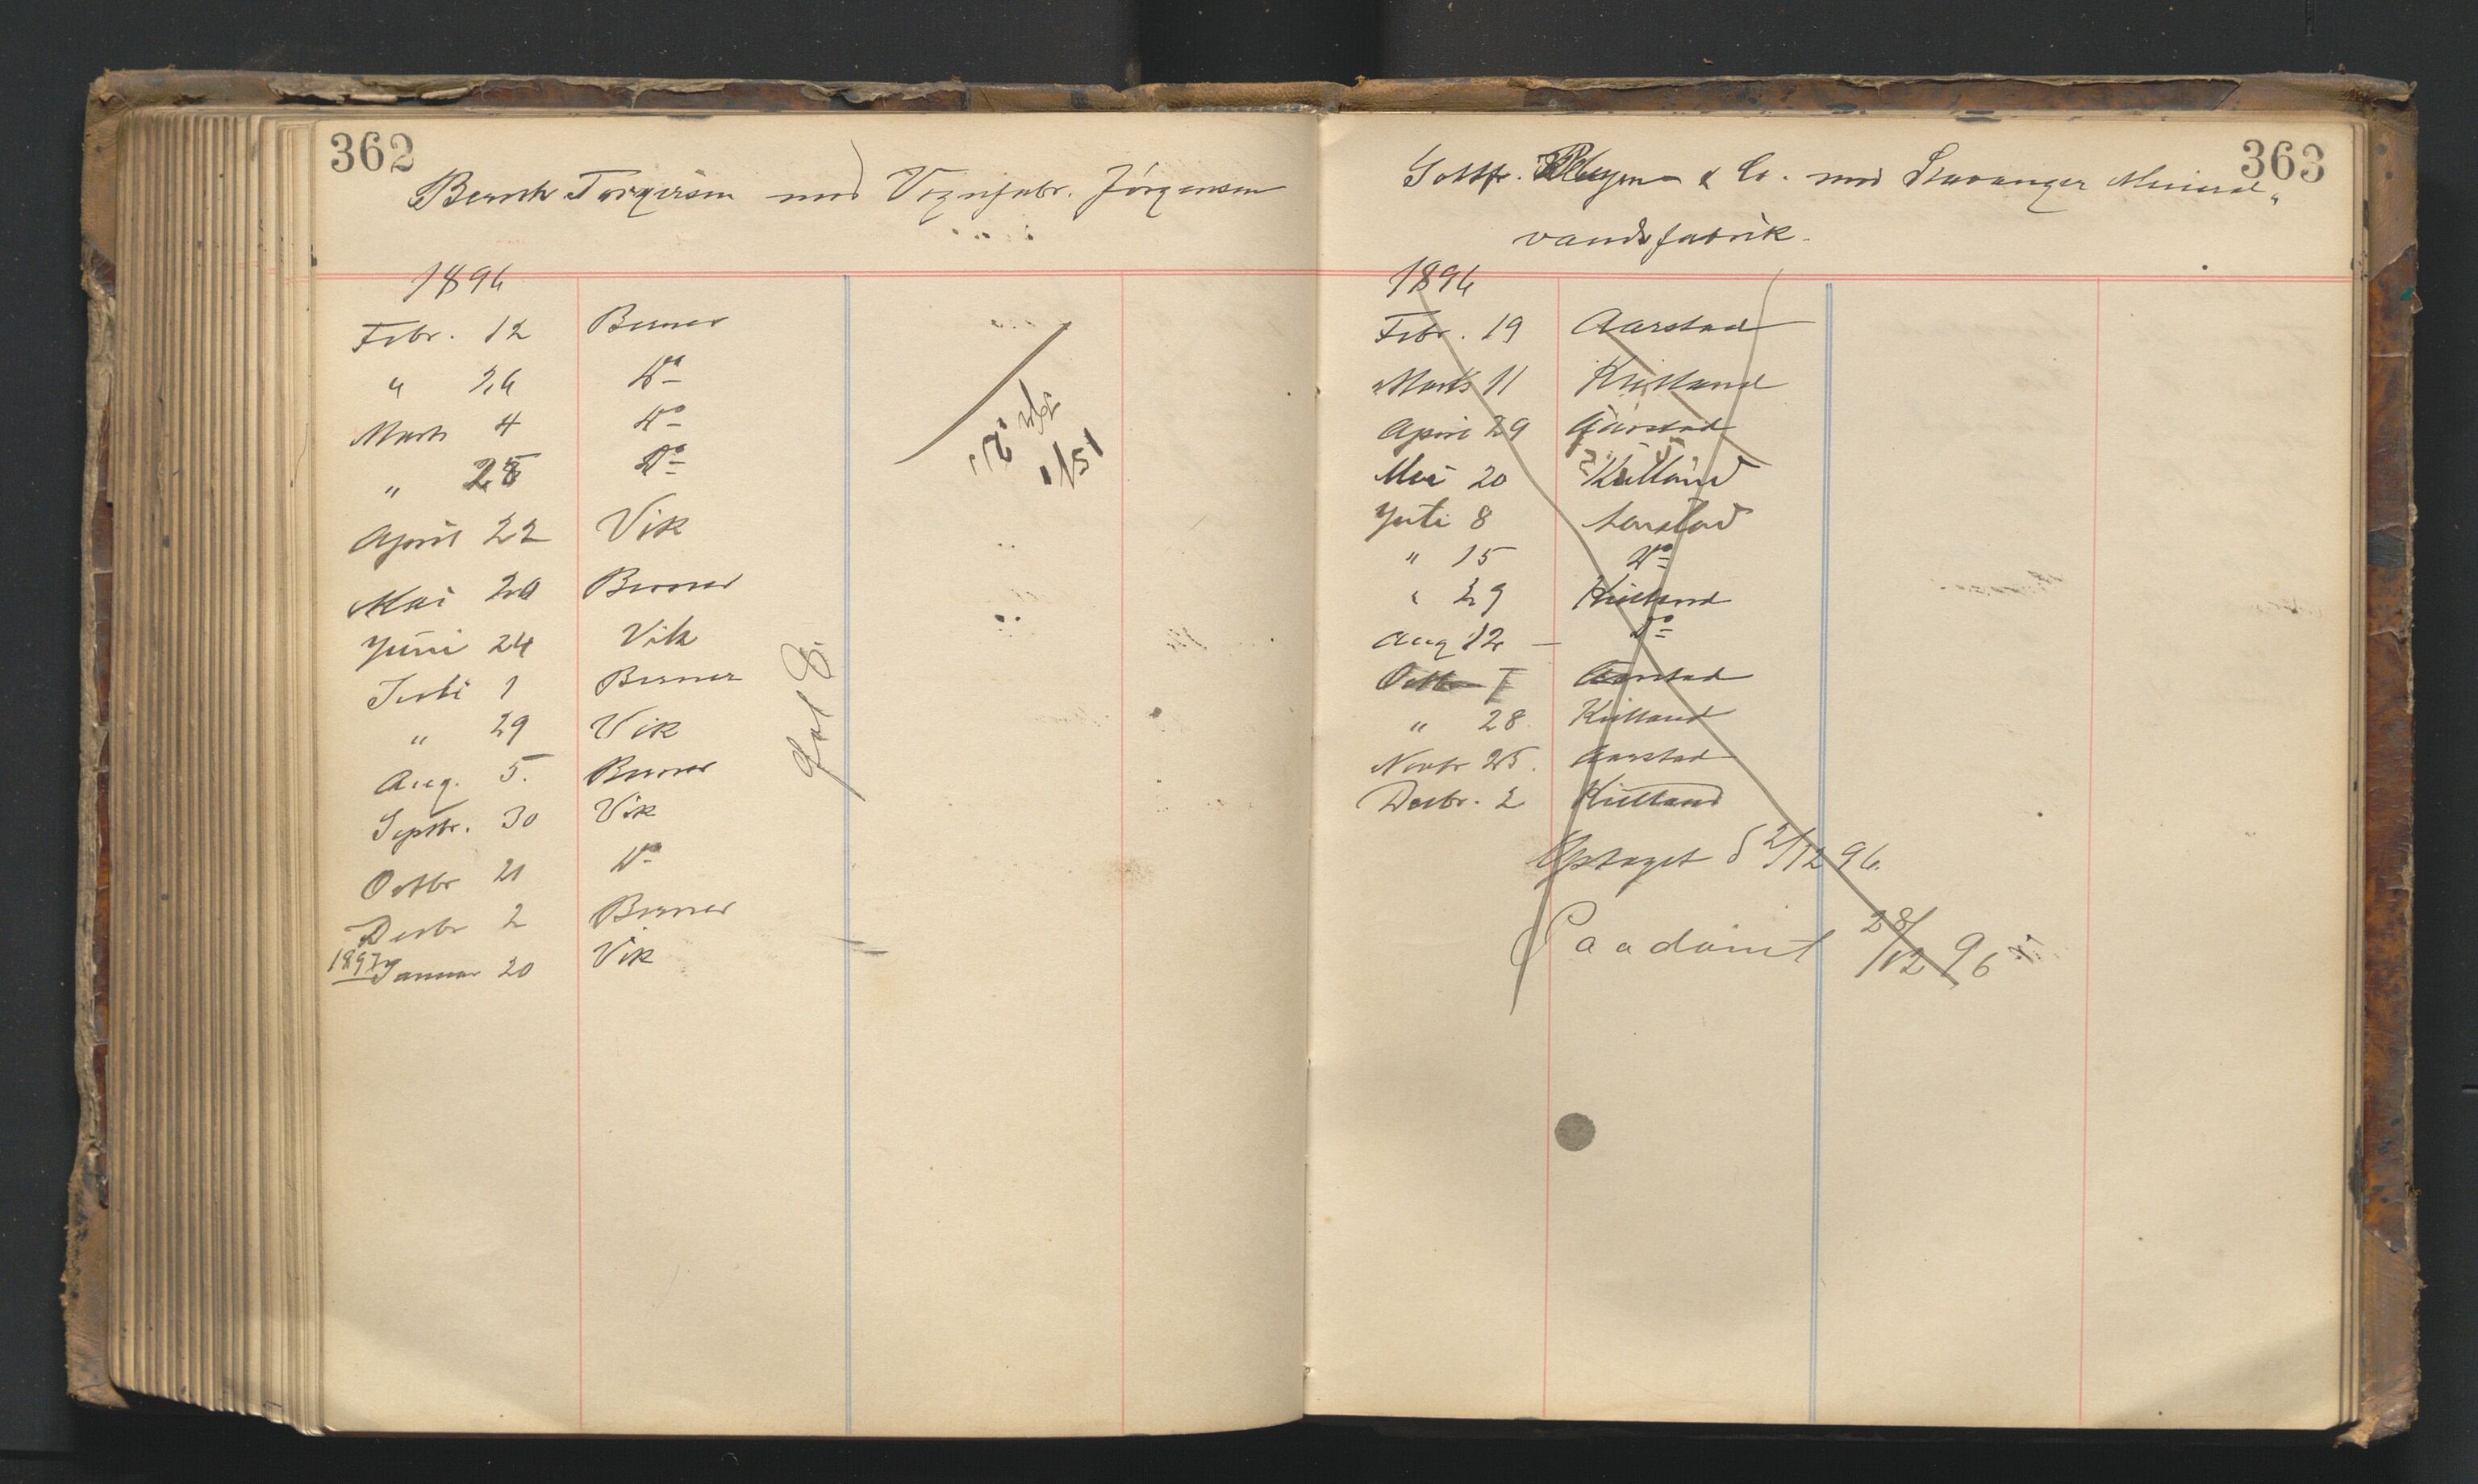 362
Berneh Torgersen mod Vognfabr. Jörgensen
1896
Febr. 12 Berner
" 26 Do
Marts 4 Do
" 25 Do
April 22 Vik
Mai 20 Berner
Juni 24 Vik
Juli 1 Berner
" 29 Vik
Aug. 5. Berner
Septbr. 30 Vik
Octbr 21 Do
Decbr 2 Berner
1897 Januar 20 Vik
363
Gottfr. & Co. mod Stavanger Mineral„
vandsfabrik.
1896
Febr. 19 Aarstad
Marts 11 Kielland
April 29 Aarstad
Mai 20 Kielland
Juli 8 Aarstad
" 15 Do
" 29 Kielland
Aug 12 — Do
Octbr 7 Aarstad
" 28 Kielland
Novbr 25. Aarstad
Decbr. 2 Kielland
Optaget d 2/12 96.
Paadömt 28/12 96